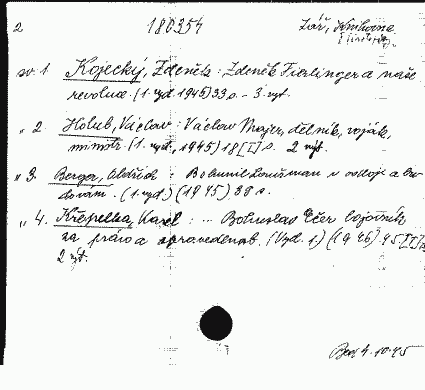 2 180354 Zář, Knihovna
sv. 1. Kojecký, Zdeněk: Zdeněk Fierlinger a naše
revoluce. (1. vyd. 1945) 33 s. - 3. výt.
„ 2. Holub, Václav: Václav Majer, dělník, voják,
ministr. (1. vyd., 1945) 18 [I] s. 2 výt.
„ 3. Berger, Oldřich: Bohumil Laušman v odboji a bu-
dování. (1. vyd.) (1945) 38 s.
„ 4. Křepelka, Karel: ... Bohuslav Ečer bojovník
za právo a spravedlnost. (Vyd. 1.) (1946) 45 [I] s.
2 výt.
4.10.45